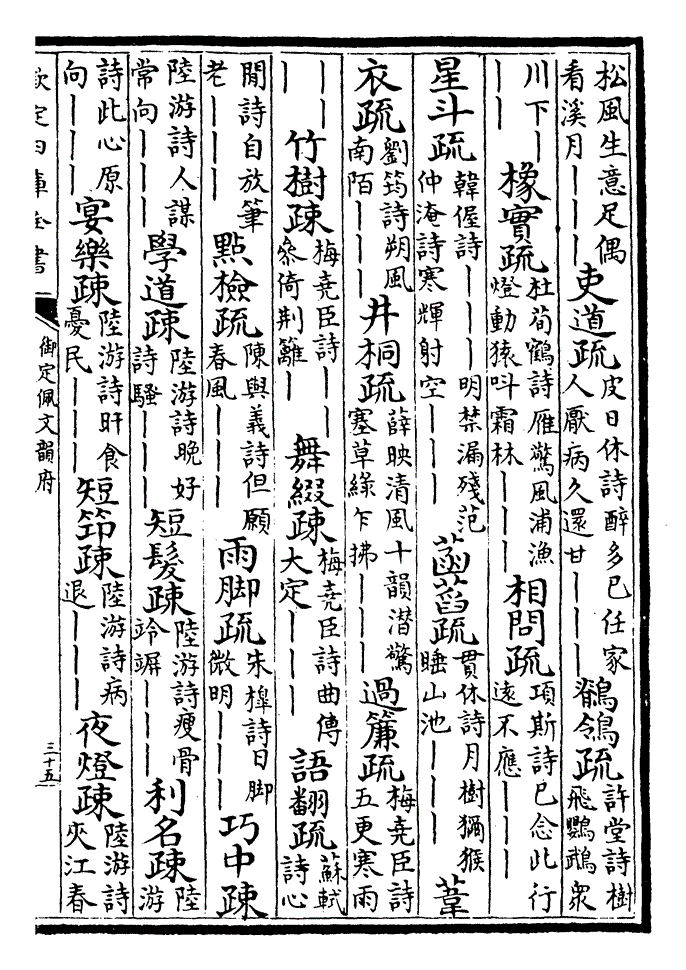 松風生意足偶看溪月｜｜｜吏道疏皮日休詩醉多已任家人厭病久還甘｜｜｜鶺鴒疏許堂詩樹飛鸚鵡眾
川下｜｜｜橡實疏杜荀鶴詩雁驚風浦漁燈動猿呌霜林｜｜｜相問疏項斯詩已念此行遠不應｜｜｜
星斗疏韓偓詩｜｜｜明禁漏殘范仲淹詩寒輝射空｜｜｜菡萏疏貫休詩月樹獼猴睡山池｜｜｜葦
衣疏劉筠詩朔風南陌｜｜｜井桐疏薛映清風十韻潜驚塞草綠乍拂｜｜｜過簾疏梅堯臣詩五更寒雨
｜｜｜竹樹疎梅堯臣詩｜｜叅倚荆籬｜舞綴疎梅堯臣詩曲傳大定｜｜｜語翻疏蘇軾詩心
閒詩自放筆老｜｜｜點檢疏陳與義詩但願春風｜｜｜雨脚疏朱槔詩日脚微明｜｜｜巧中疎
陸游詩人謀常向｜｜｜學道疎陸游詩晚好詩騷｜｜｜短髮疎陸游詩瘦骨竛竮｜｜｜利名疎陸游
詩此心原向｜｜｜宴樂疎陸游詩旰食憂民｜｜｜短笻疎陸游詩病退｜｜｜夜燈疎陸游詩夾江春
欽定四庫全書
御定佩文韻府
三十五